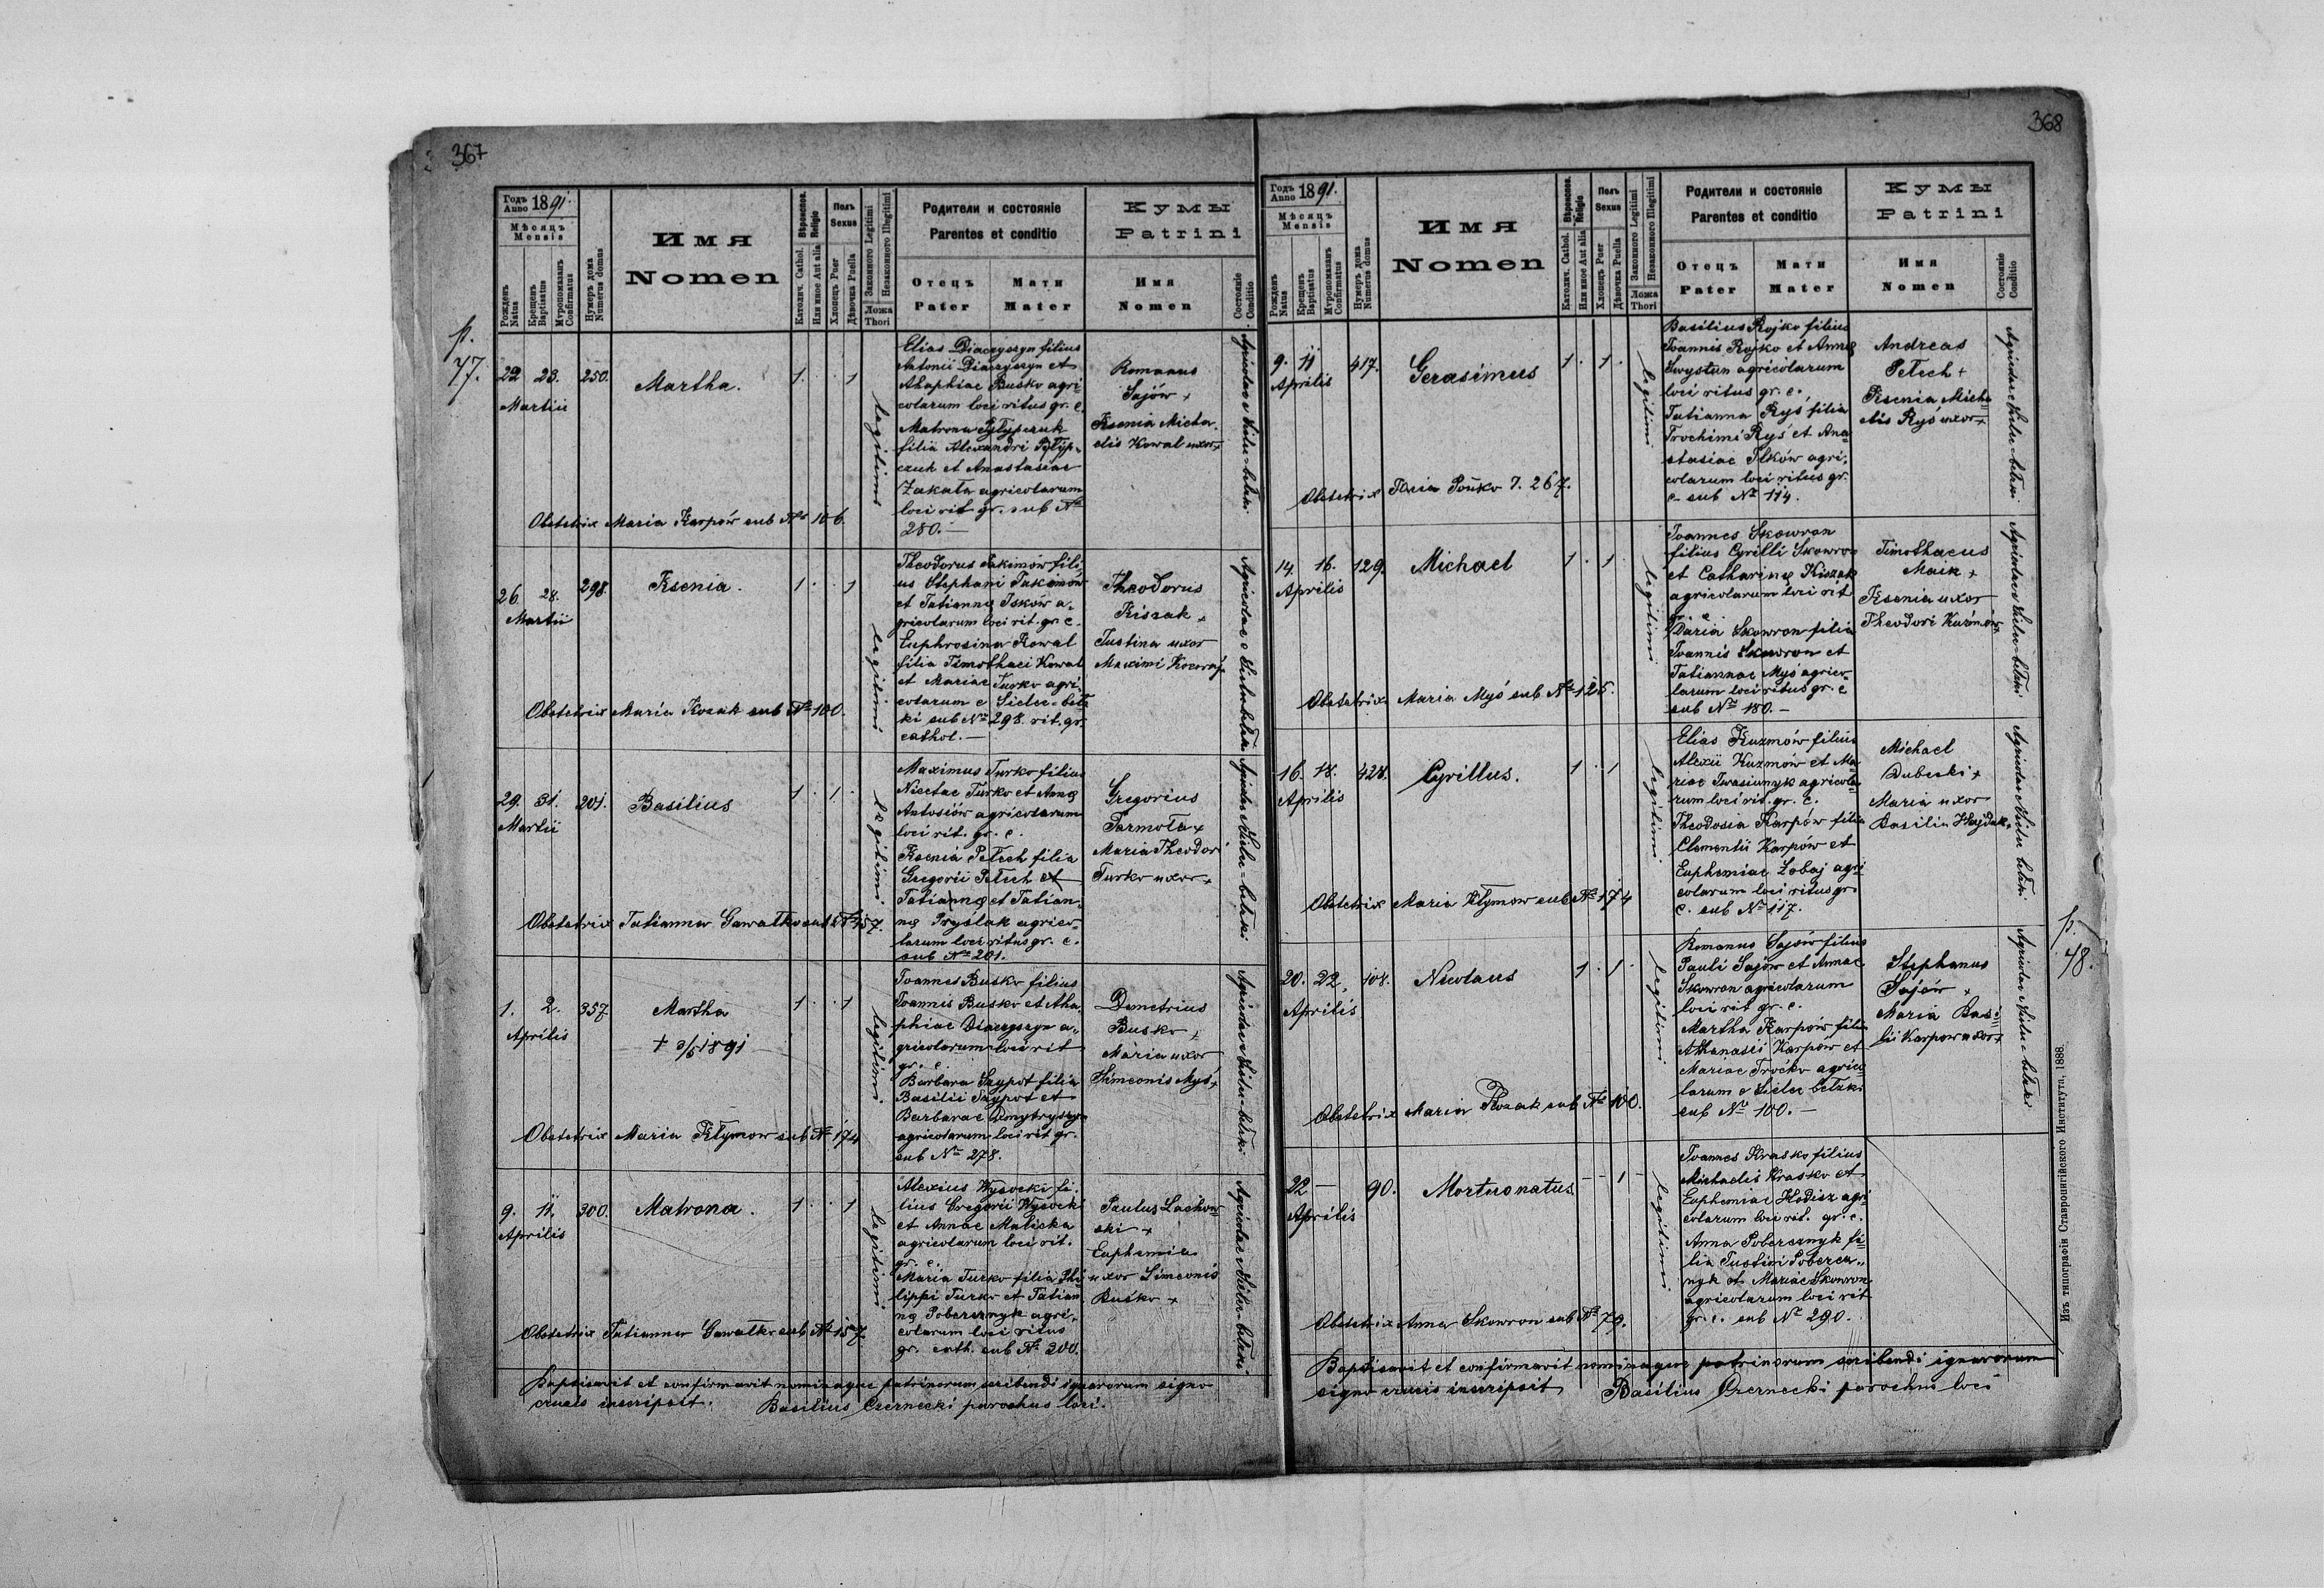 367
Годъ Anno 1891.
Мѣсяцъ Mensis
Рожденъ Natus
Крещенъ Baptisatus
Мѵропомазанъ Confirmatus
Нумеръ дома Numerus domus
Имя
Nomen
Вѣроиспов. Religio
Католич. Cathol.
Или иное Aut alia
Полъ Sexus
Хлопецъ Puer
Дѣвочка Puella
Законного Legitimi
Незаконного Illegitimi
Ложа Thori
Родители и состояніе
Parentes et conditio
Отецъ Pater
Мати Mater
Кумы
Patrini
Имя
Nomen
Состояніе Conditio
p.
47.
22 23. 250. Martha. 1 1
Martii
legitimi
Elias Diaczyszyn filius
Antonii Diaczyszyn et
Ahaphiae Busko agri
colarum loci ritus gr. c.
Matrona Pylypczuk
filia Alexandri Pylyp-
czuk et Anastasiae
Zakała agricolarum
loci rit gr. sub No
280.—
Romanus
Sajów +
Ksenia Micha
elis Kowal uxor +
Obstetrix Maria Karpów sub No 106.
26. 28. 298. Ksenia. 1 1
Martii
legitimi
Theodorus Jakimów fili
us Stephani Jakimów
et Tatiannę Iśków a-
gricolarum loci rit. gr. c.
Euphrosina Kowal
filia Timothaei Kowal
et Mariae Turko agri
colarum e Sielec-bełz
ki sub No 298. rit. gr.
cathol.—
Theodorus
Kiszak +
Justina uxor
Maximi
Obstetrix Maria Kozak sub No 100.
29. 31. 201. Basilius 1 1
Martii
legitimi
Maximus Turko filius
Nicetae Turko et Annę
Antosiów agricolarum
loci rit. gr. c.
Ksenia Pełech filia
Gregorii Pełech et
Tatiannę et Tatian-
nę Pryślak agrico-
larum loci ritus gr. c.
sub No 201.
Gregorius
Jarmoła +
Maria Theodori
Turko uxor +
Obstetrix Tatianna Gawałko sub No 157.
1. 2. 357 Martha 1 1
Aprilis
+ 3/5 1891
legitimi
Joannes Busko filius
Joannis Busko et Aha
phiae Diaczyszyn a-
gricolarum loci rit
gr. c.
Barbara Szypot filia
Basilii Szypot et
Barbarae Dmytryszyn
agricolarum loci rit gr.
sub No 278.
Demetrius
Busko +
Maria uxor
Simeonis Myś +
Obstetrix Maria Kłymow sub No 174
9. 11. 300. Matrona. 1 1
Aprilis
legitimi
Alexius Wysocki fi-
lius Gregorii Wysocki
et Annae Malicka
agricolarum loci rit.
gr. c.
Maria Turko filia Phi
lippi Turko et Tatian
nę Pobereznyk agri-
colarum loci ritus
gr. cath. sub No 200.
Paulus Lachow
ski +
Euphemia
uxor Simeonis
Busko +
Obstetrix Tatianna Gawałko sub No 157.
Baptisavit et confirmavit nominaque patrinorum scribendi ignarorum signo
crucis inscripsit. Basilius Czernecki parochus loci.
368
Годъ Anno 1891.
Мѣсяцъ Mensis
Рожденъ Natus
Крещенъ Baptisatus
Мѵропомазанъ Confirmatus
Нумеръ дома Numerus domus
Имя
Nomen
Вѣроиспов. Religio
Католич. Cathol.
Или иное Aut alia
Полъ Sexus
Хлопецъ Puer
Дѣвочка Puella
Законного Legitimi
Незаконного Illegitimi
Ложа Thori
Родители и состояніе
Parentes et conditio
Отецъ Pater
Мати Mater
Кумы
Patrini
Имя
Nomen
Состояніе Conditio
9. 11 417. Gerasimus 1 1
Aprilis
legitimi
Basilius Rojko filius
Joannis Rojko et Annę
Swystun agricolarum
loci ritus gr. c.
Tatianna Ryś filia
Trochimi Ryś et Ana
stasiae Ilków agri-
colarum loci ritus gr.
c. sub No 114.
Andreas
Pełech +
Ksenia Micha
elis Ryś uxor +
Obstetrix 267.
14. 16. 129. Michael 1 1
Aprilis
legitimi
Joannes Skowron
filius Cyrilli Skowron
et Catharinę Kiszak
agricolarum loci rit
gr. c.
Daria Skowron filia
Joannis Skowron et
Tatiannae Myś agrico-
larum loci ritus gr. c
sub No 180.—
Timothaeus
Maik +
Ksenia uxor
Theodori Kuźmów +
Obstetrix Maria Myś sub No 125.
16. 18. 428. Cyrillus. 1 1
Aprilis
legitimi
Elias Kuzmów filius
Alexii Kuzmów et Ma
riae Iwasiunyk agricola
rum loci rit. gr. c.
Theodosia Karpów filia
Clementii Karpów et
Euphemiae Łobaj agri
colarum loci ritus gr.
c. sub No 117.
Michael
Dubecki +
Maria uxor
Basilii Hajduk +
Obstetrix Maria Kłymow sub No 174
p.
48.
20. 22. 108. Nicolaus 1 1
Aprilis
legitimi
Romanus Sajów filius
Pauli Sajów et Annae
Skowron agricolarum
loci rit gr. c.
Martha Karpów filia
Athanasii Karpów et
Mariae Troćko agrico
larum e Sielec bełzki
sub No 100.—
Stephanus
Sajów +
Maria Basi
lii Karpow uxor +
Obstetrix Maria Kozak sub No 100.
22 — 90. Mortuonatus — — 1 —
Aprilis
legitimi
Joannes Krasko filius
Michaelis Krasko et
Euphemiae Kodisz agri
colarum loci rit. gr. c.
Anna Pobereznyk fi-
lia Justini Poberez-
nyk et Mariae Skowron
agricolarum loci rit
gr. c. sub No 290.
Obstetrix Anna Skowron sub No 79.
Baptisavit et confirmavit nominaque patrinorum scribendi ignarorum
signo crucis inscripsit Basilius Czernecki parochus loci
Изъ типографіи Ставропигійского Института, 1888.